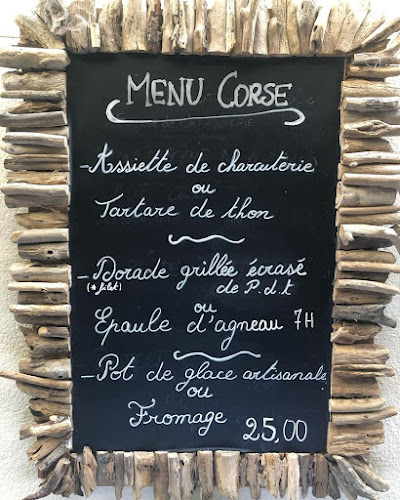 MENU CORSE
- Assiette de charcuterie
ou
Tartare de thon
- Dorade grillée écrasé
(* filet) de P.d.t
ou
Epaule d'agneau 7H
- Pot de glace artisanale
ou
Fromage 25,00